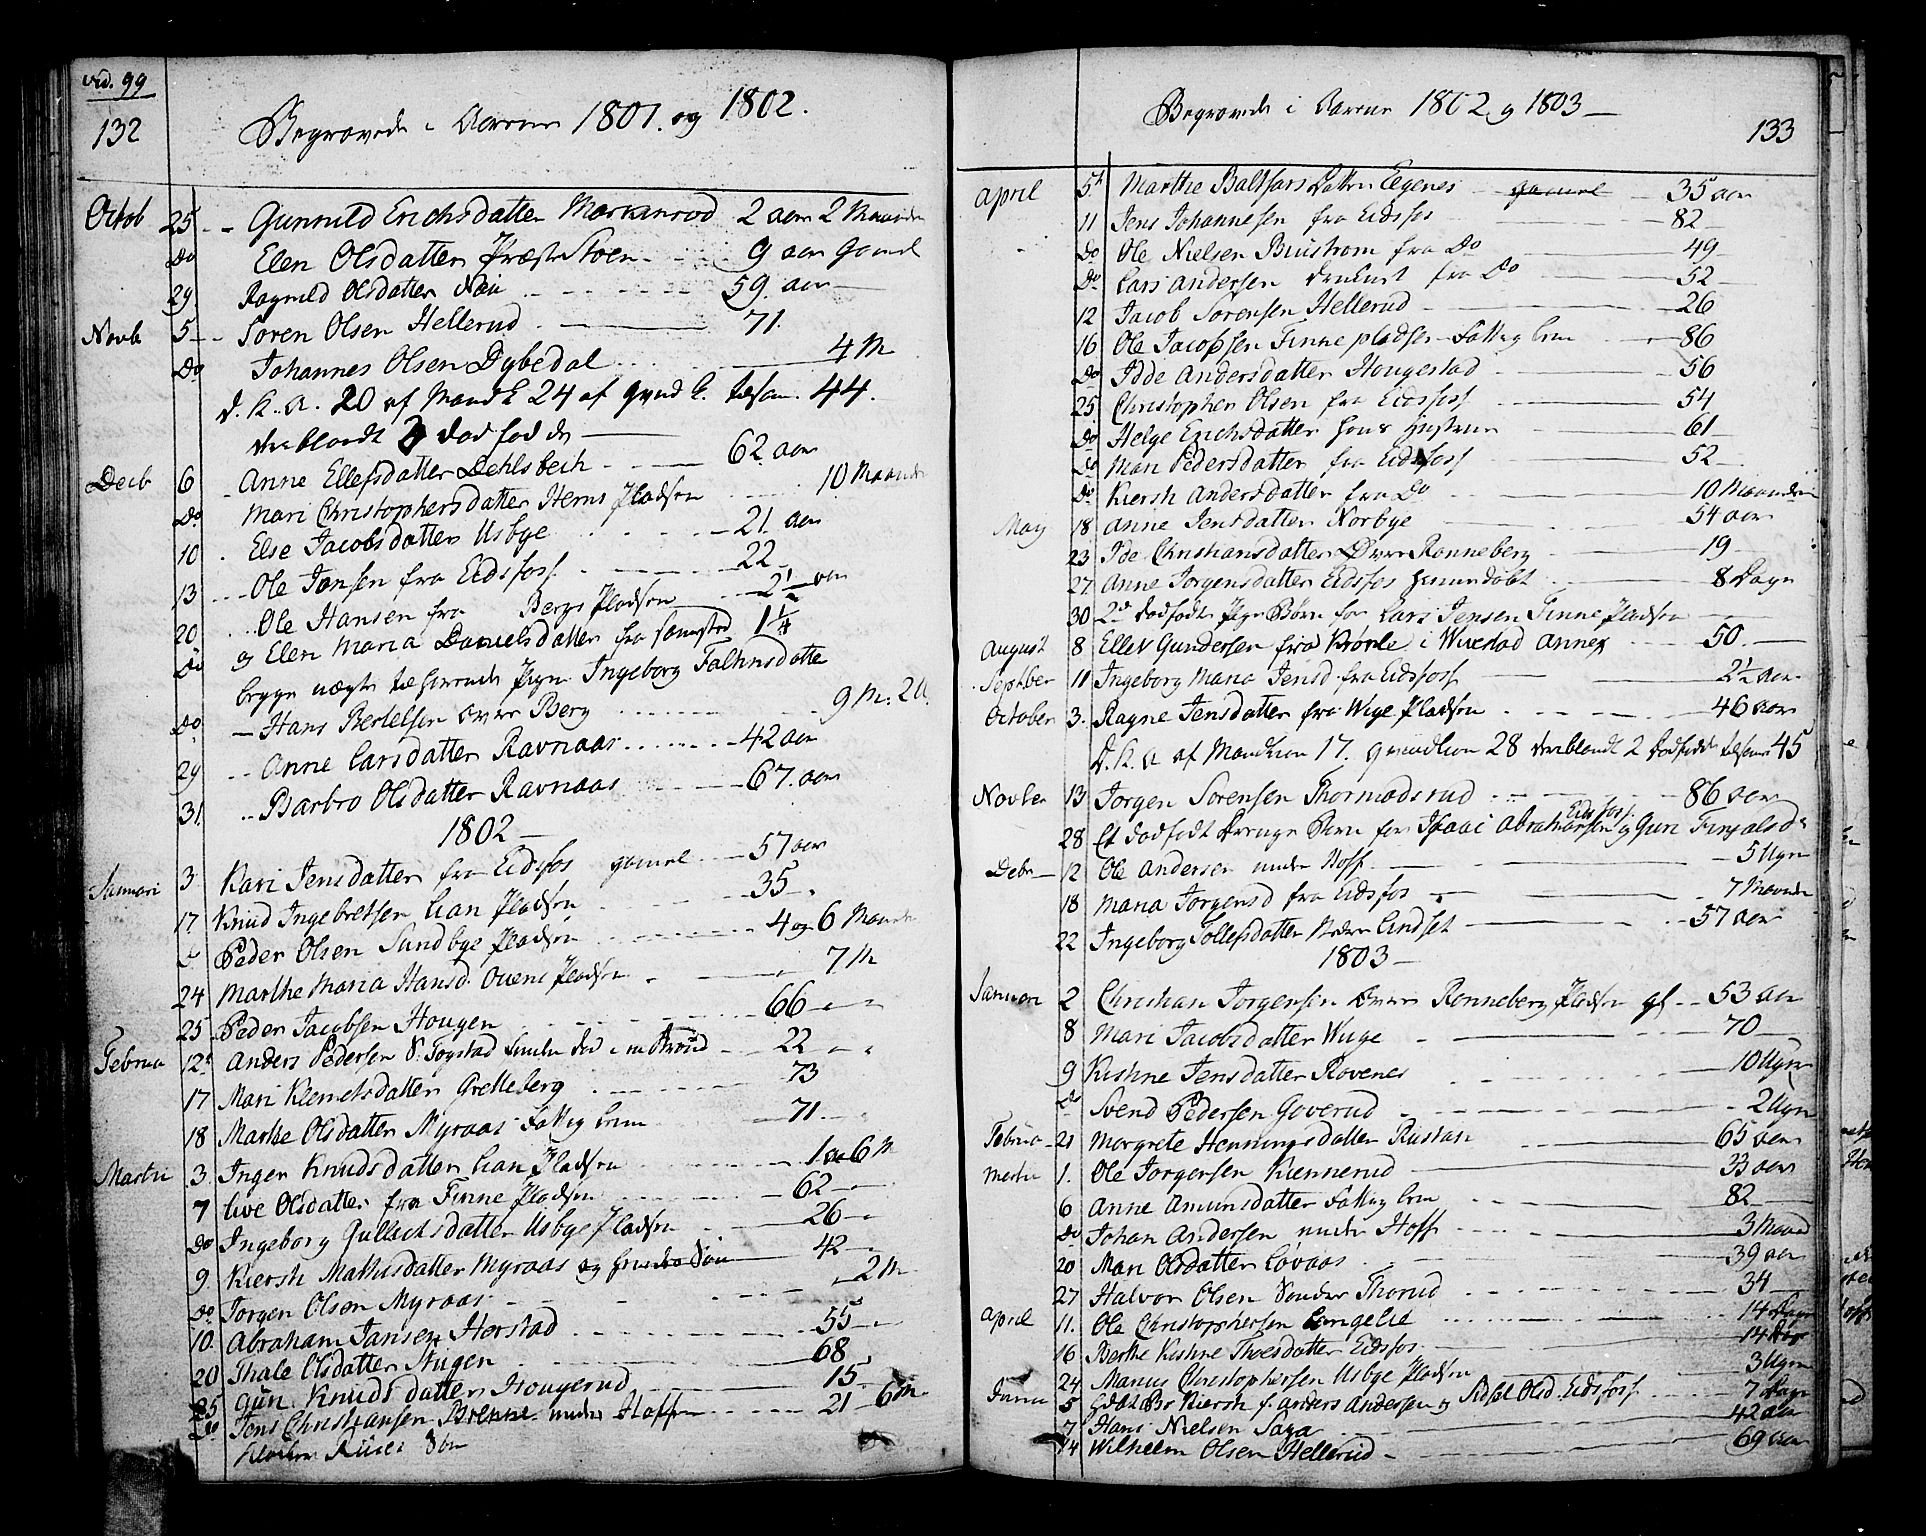 vid. 99
132
Begravede i Aarene 1801. og 1802.
Octob 25 Gunnild Erichsdatter 2 aar 2 Maaneder
Do Elen Olsdatter Præste Stoen 9 aar gamel
29 Ragnild Olsdatter 59. aar
Novb 5 Soren Olsen Hellerud 71.
Do Johannes Olsen Dybedal 4 M
D. K. A. 20 af Mandk 24 af qvind k. tilsam. 44.
deriblandt 3 dødfødde
Decb 6 Anne Ellefsdatter 62. aar
Do Mari Christophersdatter Hems Pladsen 10 Maaneder
10 Else Jacobsdatter Usbye 21. aar
13 Ole Jansen fra Eidsfoss 22
20 Ole Hansen fra Bergs Pladsen 2½ aar
Do og Elen Maria Danielsdatter fra samested 1¼
Pigen Ingeborg
Do Hans Bertelsen øvre Berg 9 M. 2 U.
29 Anne Larsdatter Ravnaas 42 aar
31. Barbro Olsdatter Ravnaas 67. aar
1802
Januari 3 Kari Jensdatter fra Eidsfos gamel 57 aar
17 Knud Ingebretsen Lian Pladsen 35
D Peder Olsen Sundbye Pladsen 4 og 6 Maaneder
24 Marthe Maria Hansd. Ouens Pladsen 7 M
25 Peder Jacobsen Hougen 66
Februa 12 Anders Pedersen S. Fogstad 22
17 Mari Klemetsdatter Gretteberg 73
18 Marthe Olsdatter Myraas Fattig Lem 71
Martii 3. Inger Knudsdatter Lian Pladsen 1 aar 6 M
7 Live Olsdatter fra Finne Pladsen 62
Do Ingeborg Gullichsdatter Usbye Pladsen 26
9 Kiersti Mathisdatter Myraas og hendes Søn 42
Do Jorgen Olsen Myraas 2 M
10. Abraham Jansen Herstad 55
20 Thale Olsdatter Stigen 68
25 Gun. Knudsdatter Hougerud 15
Do Jens Christiansen Brenne under Hoff 21 6 M
Begravede i Aarene 1802 og 1803
133
April 5t Marthe Baltsars Datter Eegenes gamel 35 aar
11 Jens Johannesen fra Eidsfos 82
Do Ole Nielsen Buustrom fra Do 49
Do Lars Andersen fra Do 52
12 Jacob Sorensen Hellerud 26
16 Ole Jacobsen Finne pladsen Fattig lem 86
Do Idde Andersdatter Hougestad 56
25 Christopher Olsen fra Eidsfoss 54
Do Helge Erichsdatter hans Hustrue 61
Do Mari Pedersdatter fra Eidsfoss 52
Do Kiersti Andersdatter fra Do 10 Maaneder
May 18 Anne Jensdatter Norbye 54 aar
23 Ide Christiansdatter Øvre Ronneberg 19
27 Anne Jorgensdatter Eidsfos hiemmedøbt 8 Dage
30 2de dødfødte Pige Børn for Lars Jensen Finne Pladsen
August 8 Ellev Gundersen fra i Wivestad Annex 50
Septber 11 Ingeborg Maria Jensd. fra Eidsfoss 2½ aar
October 3. Ragne Jensdatter fra Wige Pladsen 46 aar
D. K. A af Mandkion 17. qvindkion 28 deriblandt 2 dødfødde tilsam 45
Novber 13 Jorgen Sorensen Thormodsrud 86 aar
28 Et dødfødt Drenge Barn for Isaac Abrahamsen Eidsfoss og Guri
Debr 12 Ole Andersen under Hoff 5 Uger
18 Maria Jorgensd fra Eidsfos 7 Maaneder
22 Ingeborg Tollefsdatter Nedre Lindset 57 aar
1803
Januari 2 Christian Jorgensen Øvre Ronneberg Pladsen gl 53 aar
8 Mari Jacobsdatter Wige 70
9 Kistine Jensdatter Rovenes 10 Uger
Do Svend Pedersen Goverud 2 Uger
Februa 21 Margrete Henningsdatter Rustan 65 aar
Martii 1. Ole Jorgensen Kiennerud 33 aar
6 Anne Amunsdatter Fattig Lem 82
Do Johan Andersen under Hoff 3 Maaned
20 Mari Olsdatter Løvaas 39 aar
27 Halvor Olsen Søndre Thorud 34
April 11. Ole Christophersen Langelie 14 Dage
16 Berthe Kistine Thoesdatter Eidsfos 14 Dage
24 Marius Christophersen Usbye Pladsen 3 Uger
Junii 5 Anders Andersen og Sidsel Olsd. Eidsfoss 7 Dage
7 Hans Nielsen Saga 42 aar
14 Wilhelm Olsen Hellerud 69 aar